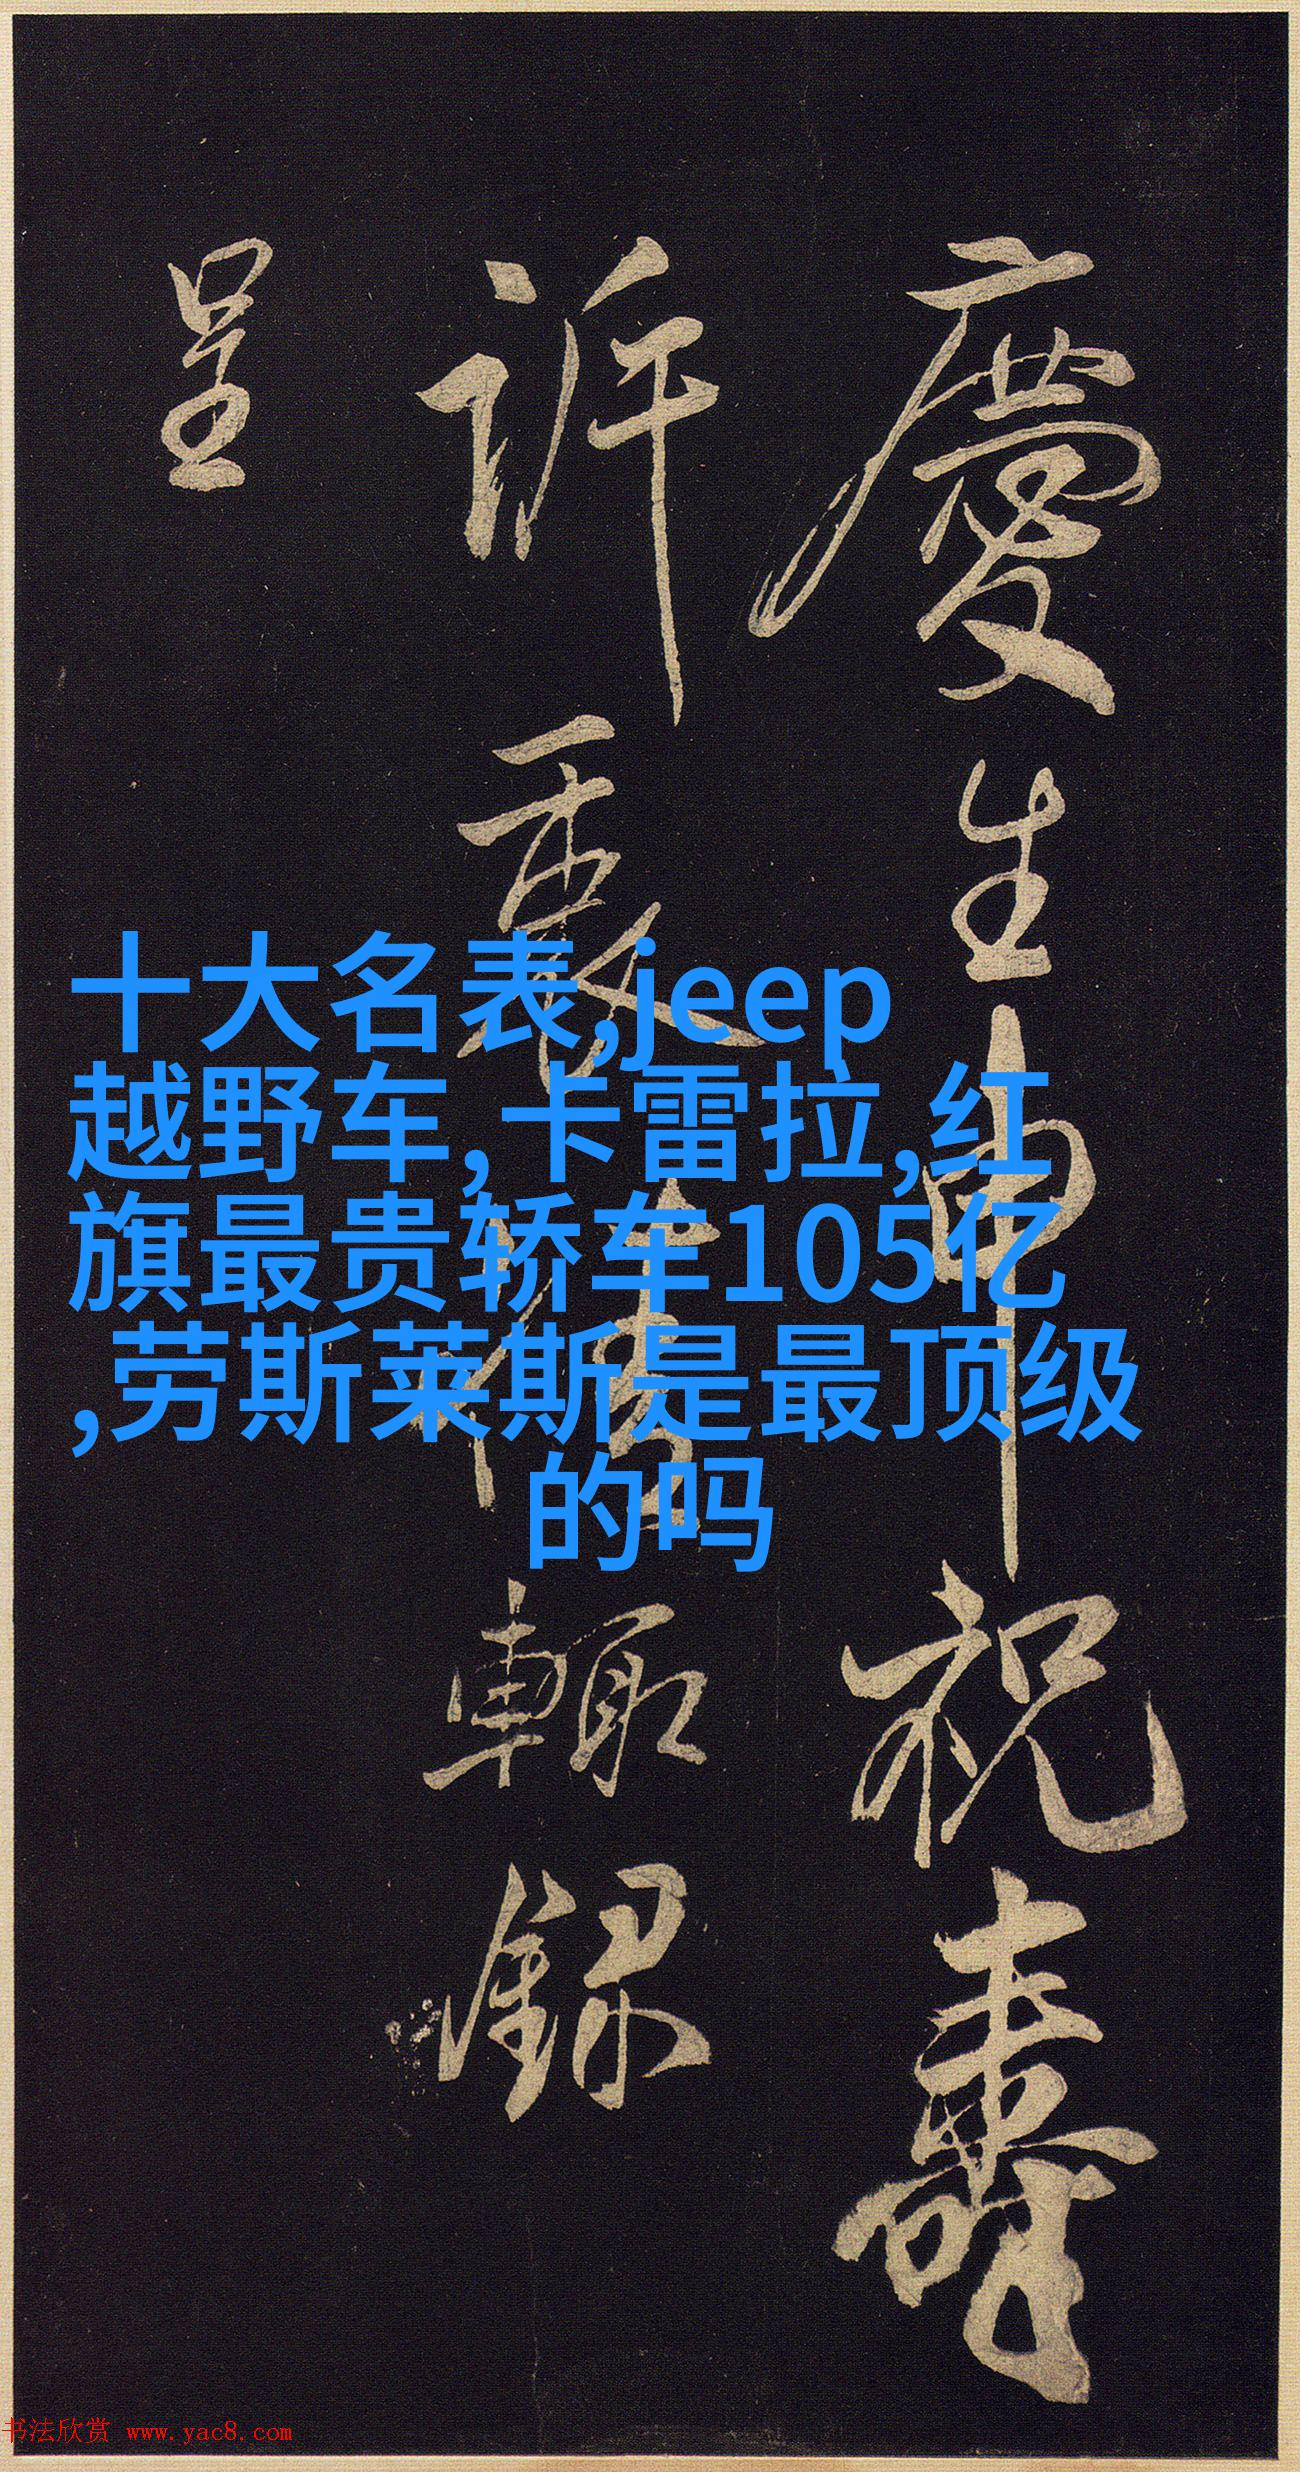 慶生申祝壽
訢
呈
輙錄
十大名表,jeep
越野车,卡雷拉,红
旗最贵轿车105亿
,劳斯莱斯是最顶级
的吗
书法欣赏 www.yac8.com